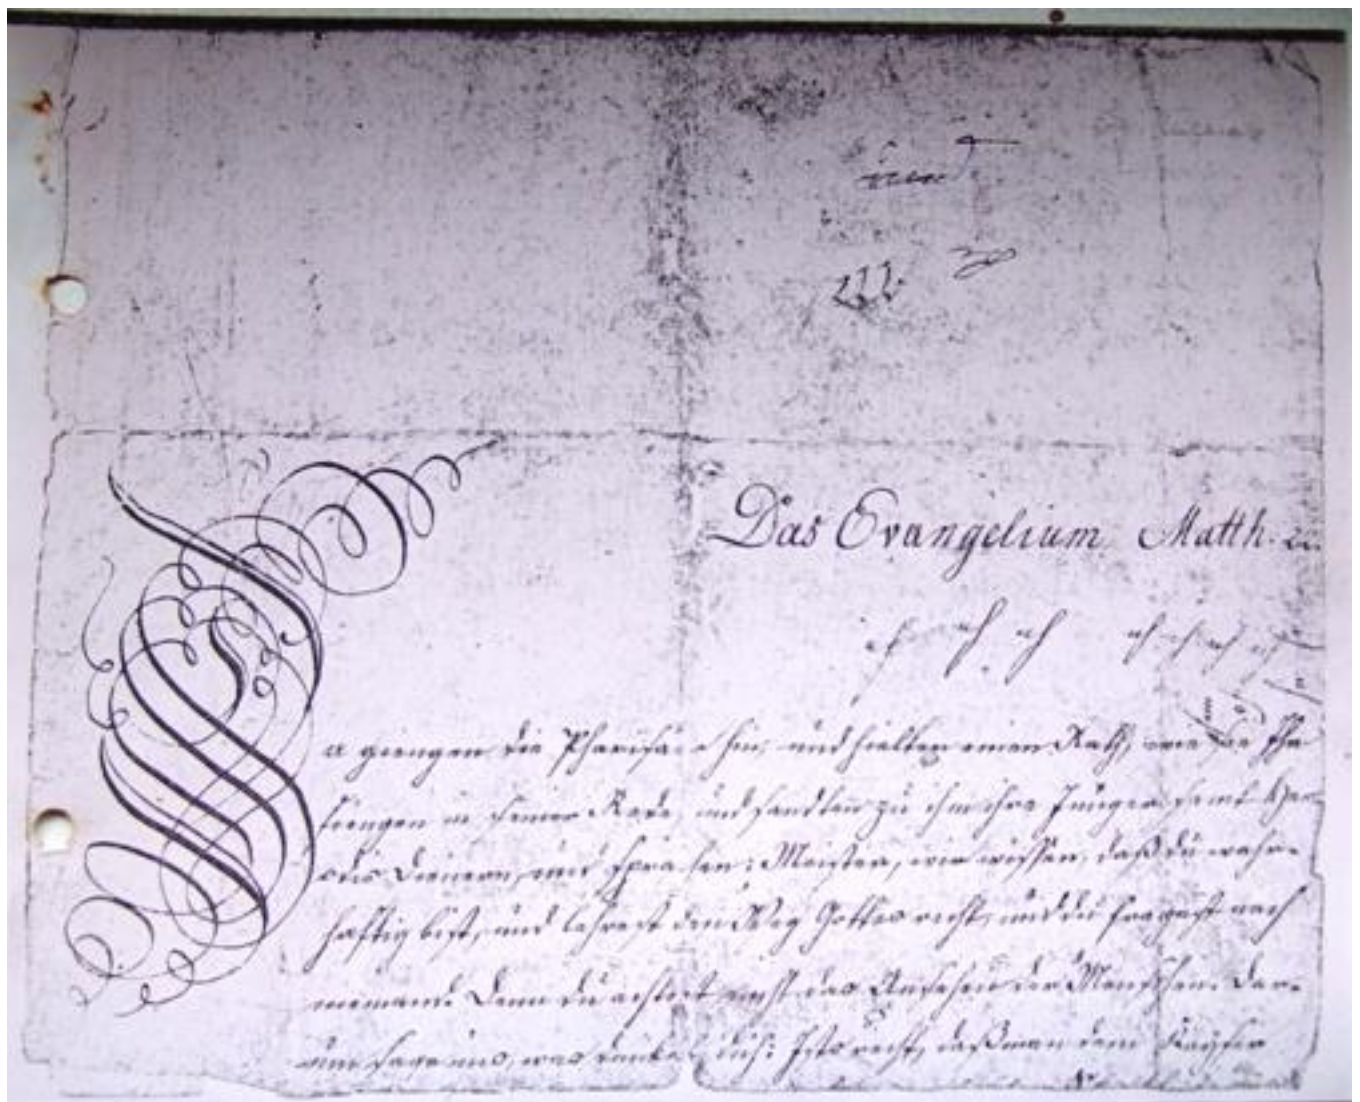 Das Evangelium Matth. 22.
Da giengen die Pharisäer hin, und hielten einen Rath, wie sie Ihn
fiengen in seiner Rede, und sandten zu ihm ihre Jünger samt Her-
odis Dienern, und sprachen: Meister, wir wissen, daß du wahr-
haftig bist, und lehrest den Weg Gottes recht, und du fragest nach
niemand. Denn du achtest nicht das Ansehen der Menschen. Dar-
um sage uns, was dünket dich: Ists recht, daß man dem Kayser